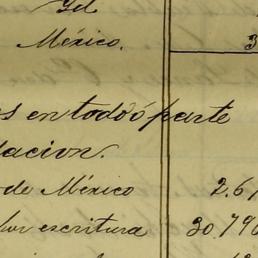 México. 3
es en todo ó parte
lacion.
de México 2.6
por escritura 30.790